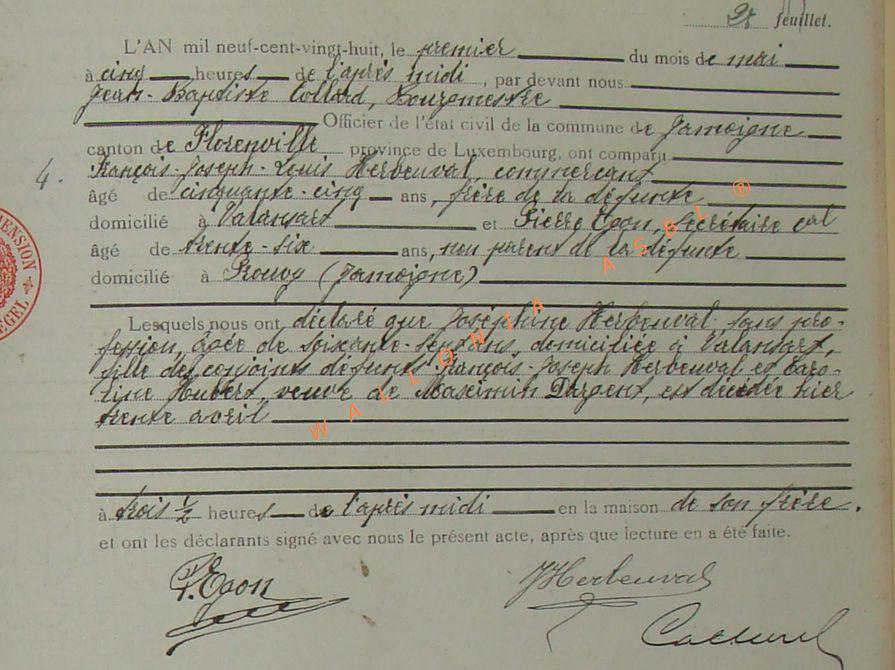 2e feuillet.
L'AN mil neuf-cent-vingt-huit, le premier du mois de mai
à cinq heures de l'après midi, par devant nous
Jean-Baptiste Collard, Bourgmestre
Officier de l'état civil de la commune de Jamoigne
canton de Florenville province de Luxembourg, ont comparu
4. François-Joseph-Louis Herbeuval, commerçant
âgé de cinquante-cinq ans, frère de la défunte
domicilié à Valansart et Pierre Egon, secrétaire cal
âgé de trente-six ans, non parent de la défunte
domicilié à Prouvy (Jamoigne)
Lesquels nous ont déclaré que Joséphine Herbeuval, sans pro-
fession, âgée de soixante-sept ans, domiciliée à Valansart,
fille des conjoints défunts François-Joseph Herbeuval et Caro-
line Hubert, veuve de Maximin Dargent, est décédée hier
trente avril
à trois 1/2 heures de l'après midi en la maison de son frère.
et ont les déclarants signé avec nous le présent acte, après que lecture en a été faite.
P. Egon JHerbeuval
WALLONIA ASBL ®
MENSION
EGEL